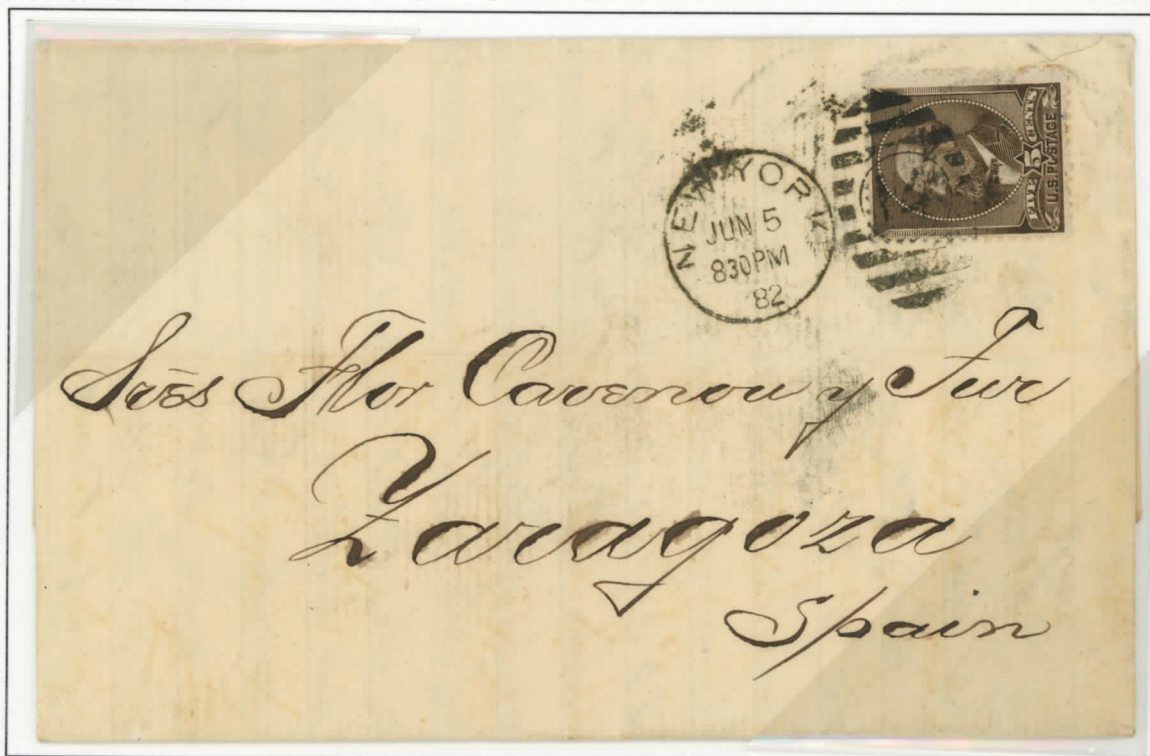 NEW YORK
JUN 5
830PM
82
FIVE 5 CENTS
U.S. POSTAGE
Srēs Flor Cavenou y Fur
Zaragoza
Spain